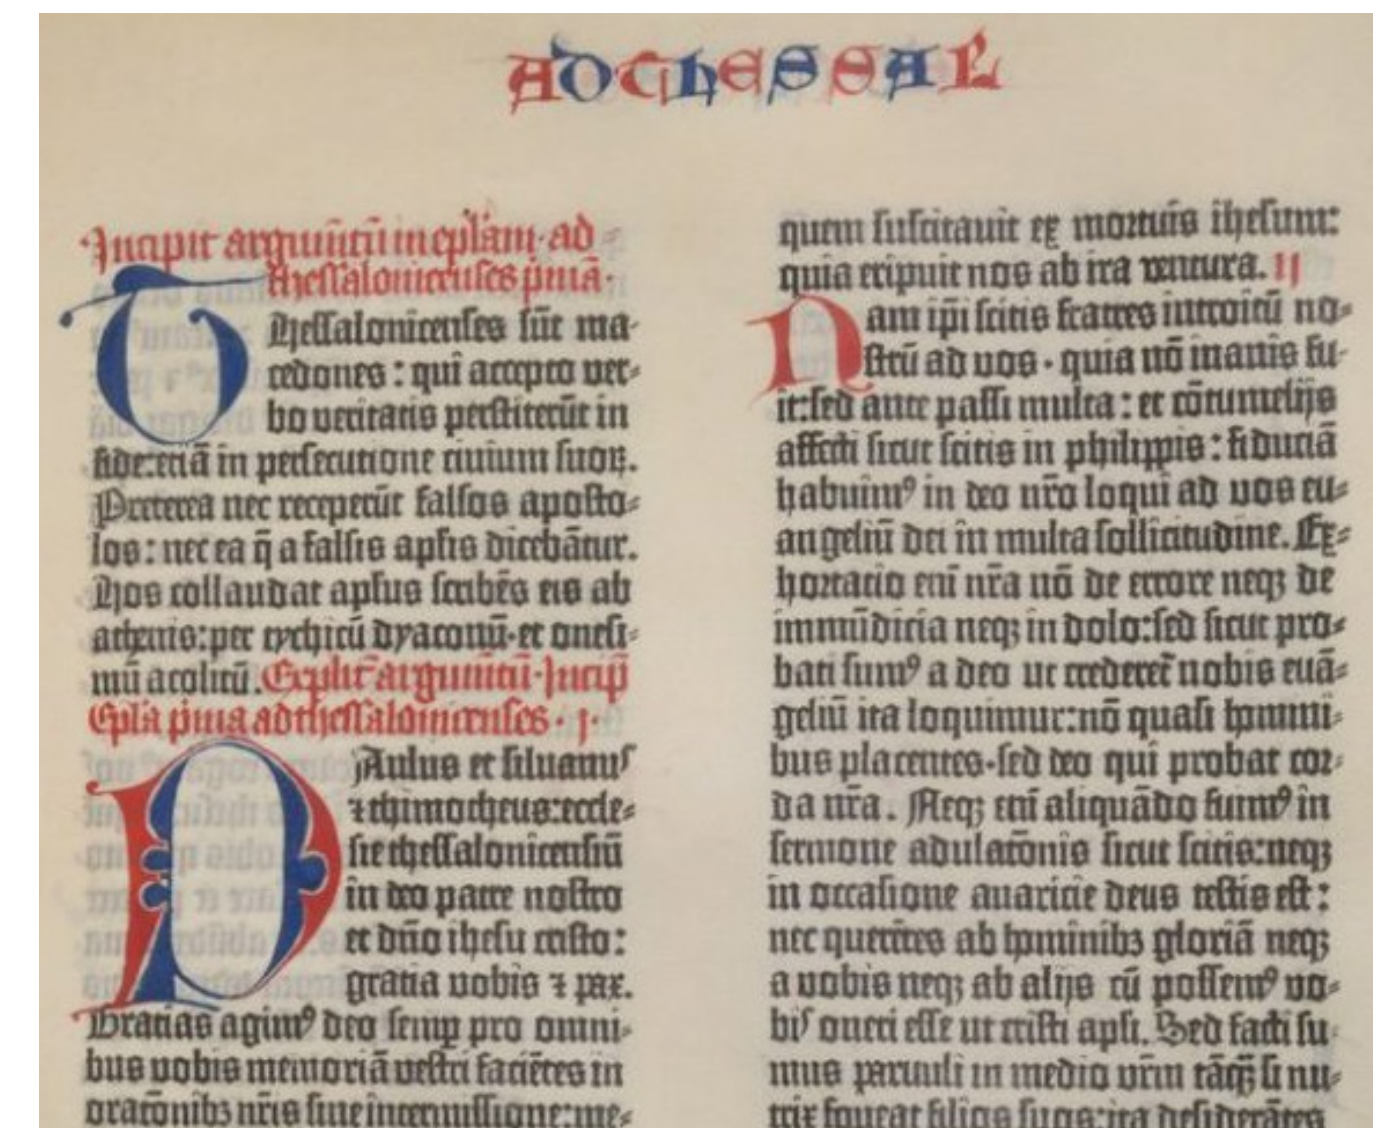 AD THESSAL
Incipit argumētū in eplam ad
thessalonicenses pͥmā.
Thessalonicenses sūt ma-
cedones : qui accepto ver-
bo veritatis perstiterūt in
fide:etiā in persecutione civium suoꝝ.
Preterea nec receperūt falsos aposto-
los : nec ea q̄ a falsis aplīs dicebātur.
Hos collaudat aplūs scribēs eis ab
athenis:per tychicū dyaconū·et onesi-
mū acolitū. Explic̄ argumētū·Incip̄
Epla pͥma ad thessalonicenses · j·
PAulus et siluanus
⁊ thimotheus:eccle-
sie thessalonicensiū
in deo patre nostro
et dn̄o ihesu cristo:
gratia vobis ⁊ pax.
Gratias agimꝰ deo semꝑ pro omni-
bus vobis memoriā vestri faciētes in
oratōnibꝫ nr̄is sine intermissione:me-
quem suscitauit ex mortuis ihesum:
quia eripuit nos ab ira ventura. II
Nam ip̄i scitis fratres introitū no-
strū ad vos · quia nō inanis fu-
it:sed ante passi multa : et cōtumelijs
affecti sicut scitis in philippis : fiduciā
habuimꝰ in deo nr̄o loqui ad vos eu-
angeliū dei in multa sollicitudine. Ex-
hortatio enī nr̄a nō de errore neqꝫ de
immūdicia neqꝫ in dolo:sed sicut pro-
bati sumꝰ a deo ut crederet̄ nobis euā-
geliū ita loquimur:nō quasi homini-
bus placentes·sed deo qui probat cor-
da nr̄a. Neqꝫ enī aliquādo fuimꝰ in
sermone adulatōnis sicut scitis:neqꝫ
in occasione auaricie deus testis est :
nec querētes ab hominibꝫ gloriā neqꝫ
a vobis neqꝫ ab alijs cū possemꝰ vo-
bis oneri esse ut cristi apl̄i. Sed facti su-
mus paruuli in medio vr̄m tāqꝫ si nu-
trix foueat filios suos:ita desiderātes